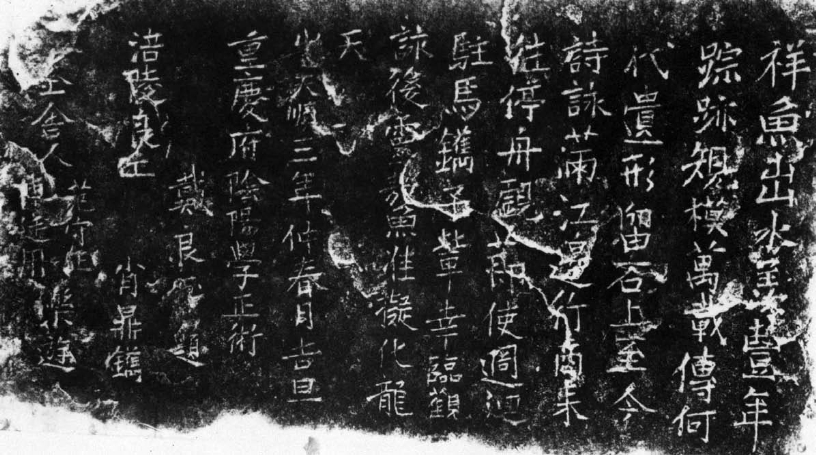 祥魚出水兆豐年
踪跡規模萬載傳何
代遺形留石上至今
詩詠滿江邊行商來
往停舟覩節使週迴
駐馬鐫予輩幸臨觀
詠後雷教魚准擬化龍
天
天順三年仲春月吉旦
重慶府陰陽學正術
戴良題
涪陵 肖鼎鐫
舍人